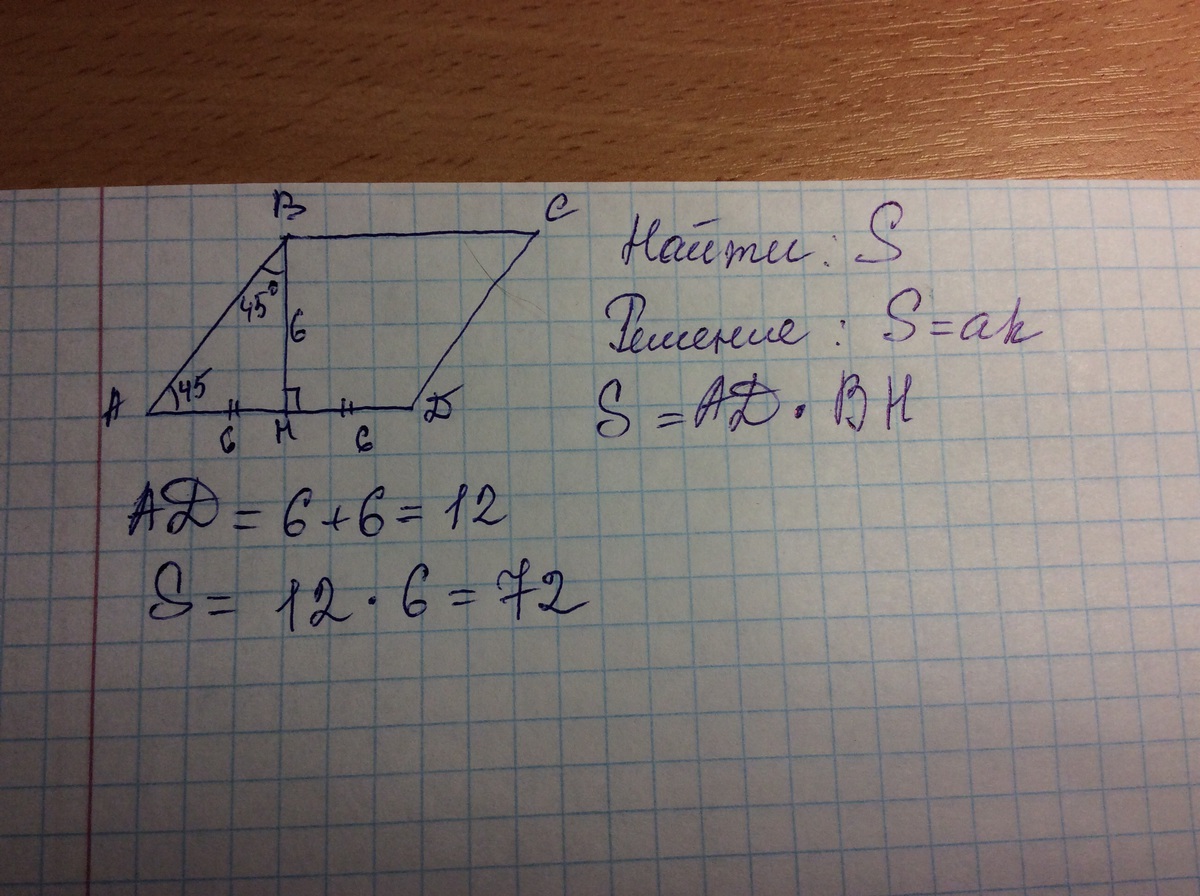 B
C
Найти: S
45°
6
Решение: S=ah
A
45
D
S=AD·BH
6
H
6
AD=6+6=12
S= 12·6=72